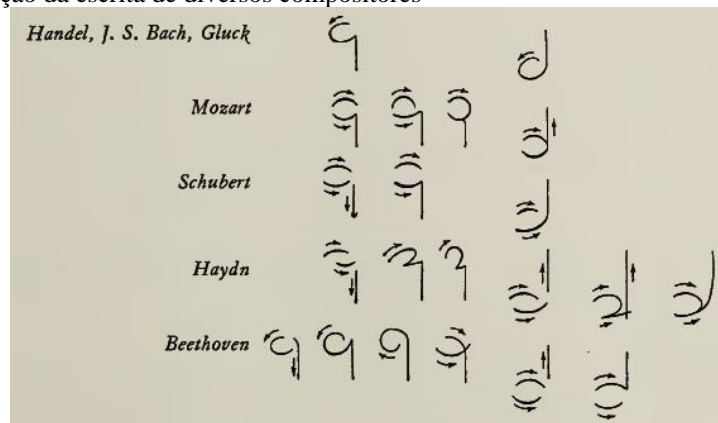 ção da escrita de diversos compositores
Handel, J. S. Bach, Gluck
Mozart
Schubert
Haydn
Beethoven